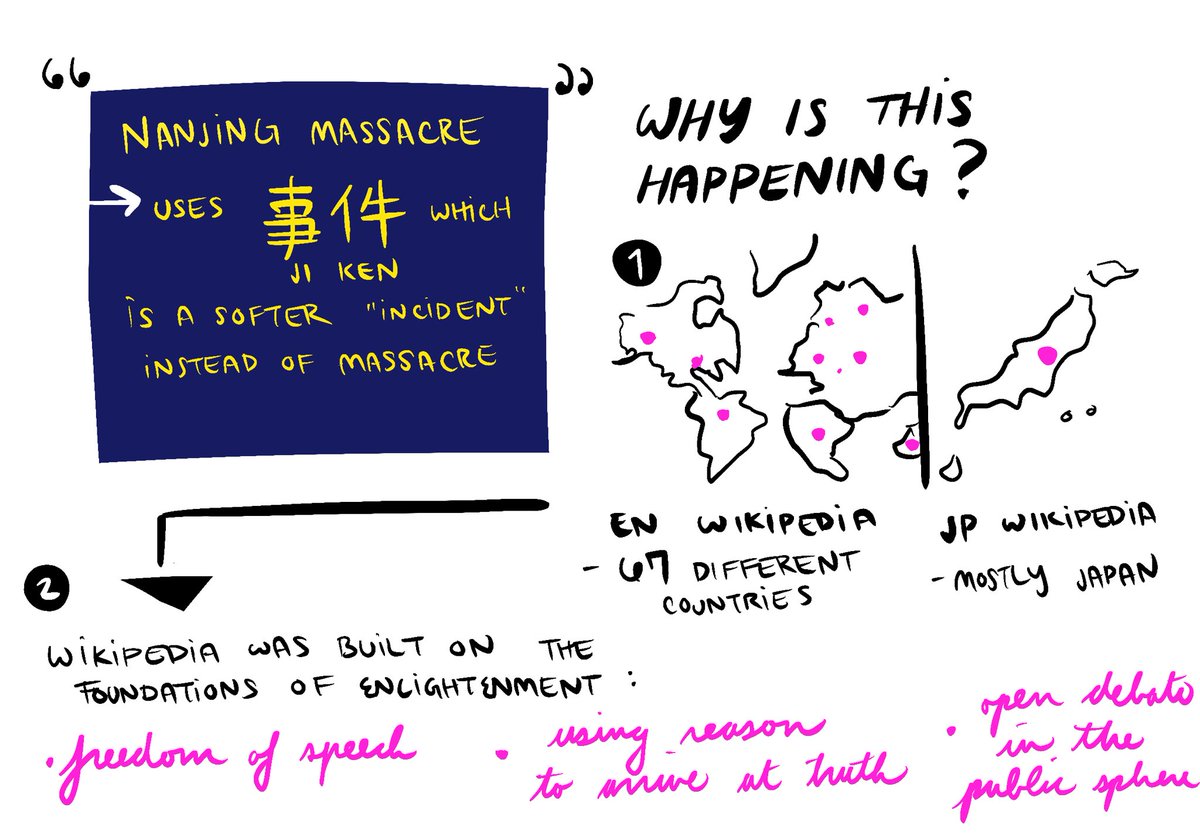 “ ”
NANJING MASSACRE
USES 事件 WHICH
JI KEN
IS A SOFTER "INCIDENT"
INSTEAD OF MASSACRE
WHY IS THIS
HAPPENING?
1
EN WIKIPEDIA
- 67 DIFFERENT
COUNTRIES
JP WIKIPEDIA
- MOSTLY JAPAN
2
WIKIPEDIA WAS BUILT ON THE
FOUNDATIONS OF ENLIGHTENMENT:
• freedom of speech
• using reason
to arrive at truth
• open debate
in the
public sphere